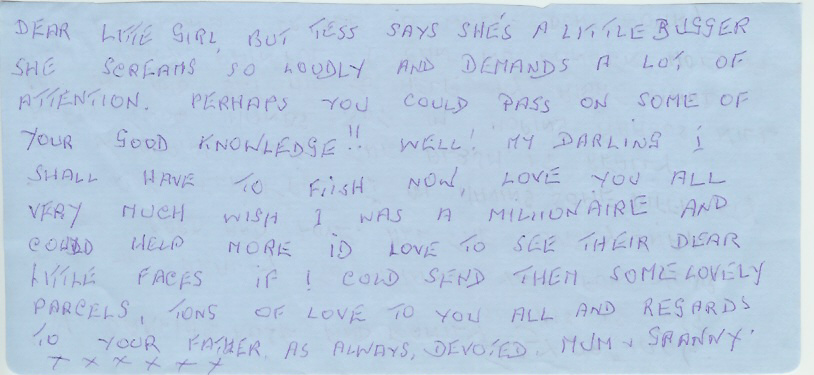 DEAR LITTE GIRL, BUT TESS SAYS SHE'S A LITTLE BUGGER
SHE SCREAMS SO LOUDLY AND DEMANDS A LOT OF
ATTENTION. PERHAPS YOU COULD PASS ON SOME OF
YOUR GOOD KNOWLEDGE!! WELL! MY DARLING I
SHALL HAVE TO FIISH NOW, LOVE YOU ALL
VERY MUCH WISH I WAS A MILLIONAIRE AND
COULD HELP MORE ID LOVE TO SEE THEIR DEAR
LITTLE FACES IF I COLD SEND THEM SOME LOVELY
PARCELS, TONS OF LOVE TO YOU ALL AND REGARDS
TO YOUR FATHER. AS ALWAYS, DEVOTED. MUM & GRANNY.
X X X X X X